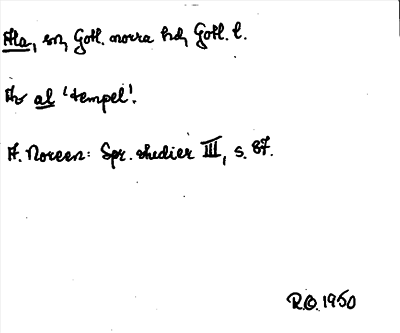 Ala, sn, Gotl. norra hd, Gotl. l.
Av al 'tempel'.
A. Noreen: Spr. studier III, s. 87.
R.O. 1950